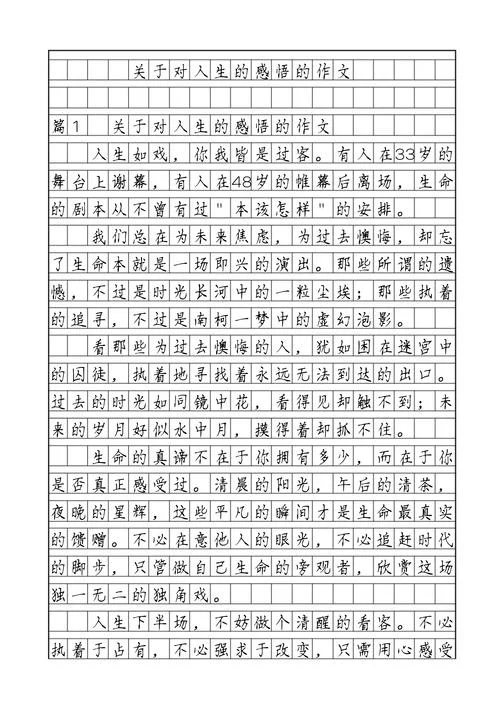 关于对人生的感悟的作文
篇1 关于对人生的感悟的作文
人生如戏，你我皆是过客。有人在33岁的
舞台上谢幕，有人在48岁的帷幕后离场，生命
的剧本从不曾有过"本该怎样"的安排。
我们总在为未来焦虑，为过去懊悔，却忘
了生命本就是一场即兴的演出。那些所谓的遗
憾，不过是时光长河中的一粒尘埃；那些执着
的追寻，不过是南柯一梦中的虚幻泡影。
看那些为过去懊悔的人，犹如困在迷宫中
的囚徒，执着地寻找着永远无法到达的出口。
过去的时光如同镜中花，看得见却触不到；未
来的岁月好似水中月，摸得着却抓不住。
生命的真谛不在于你拥有多少，而在于你
是否真正感受过。清晨的阳光，午后的清茶，
夜晚的星辉，这些平凡的瞬间才是生命最真实
的馈赠。不必在意他人的眼光，不必追赶时代
的脚步，只管做自己生命的旁观者，欣赏这场
独一无二的独角戏。
人生下半场，不妨做个清醒的看客。不必
执着于占有，不必强求于改变，只需用心感受